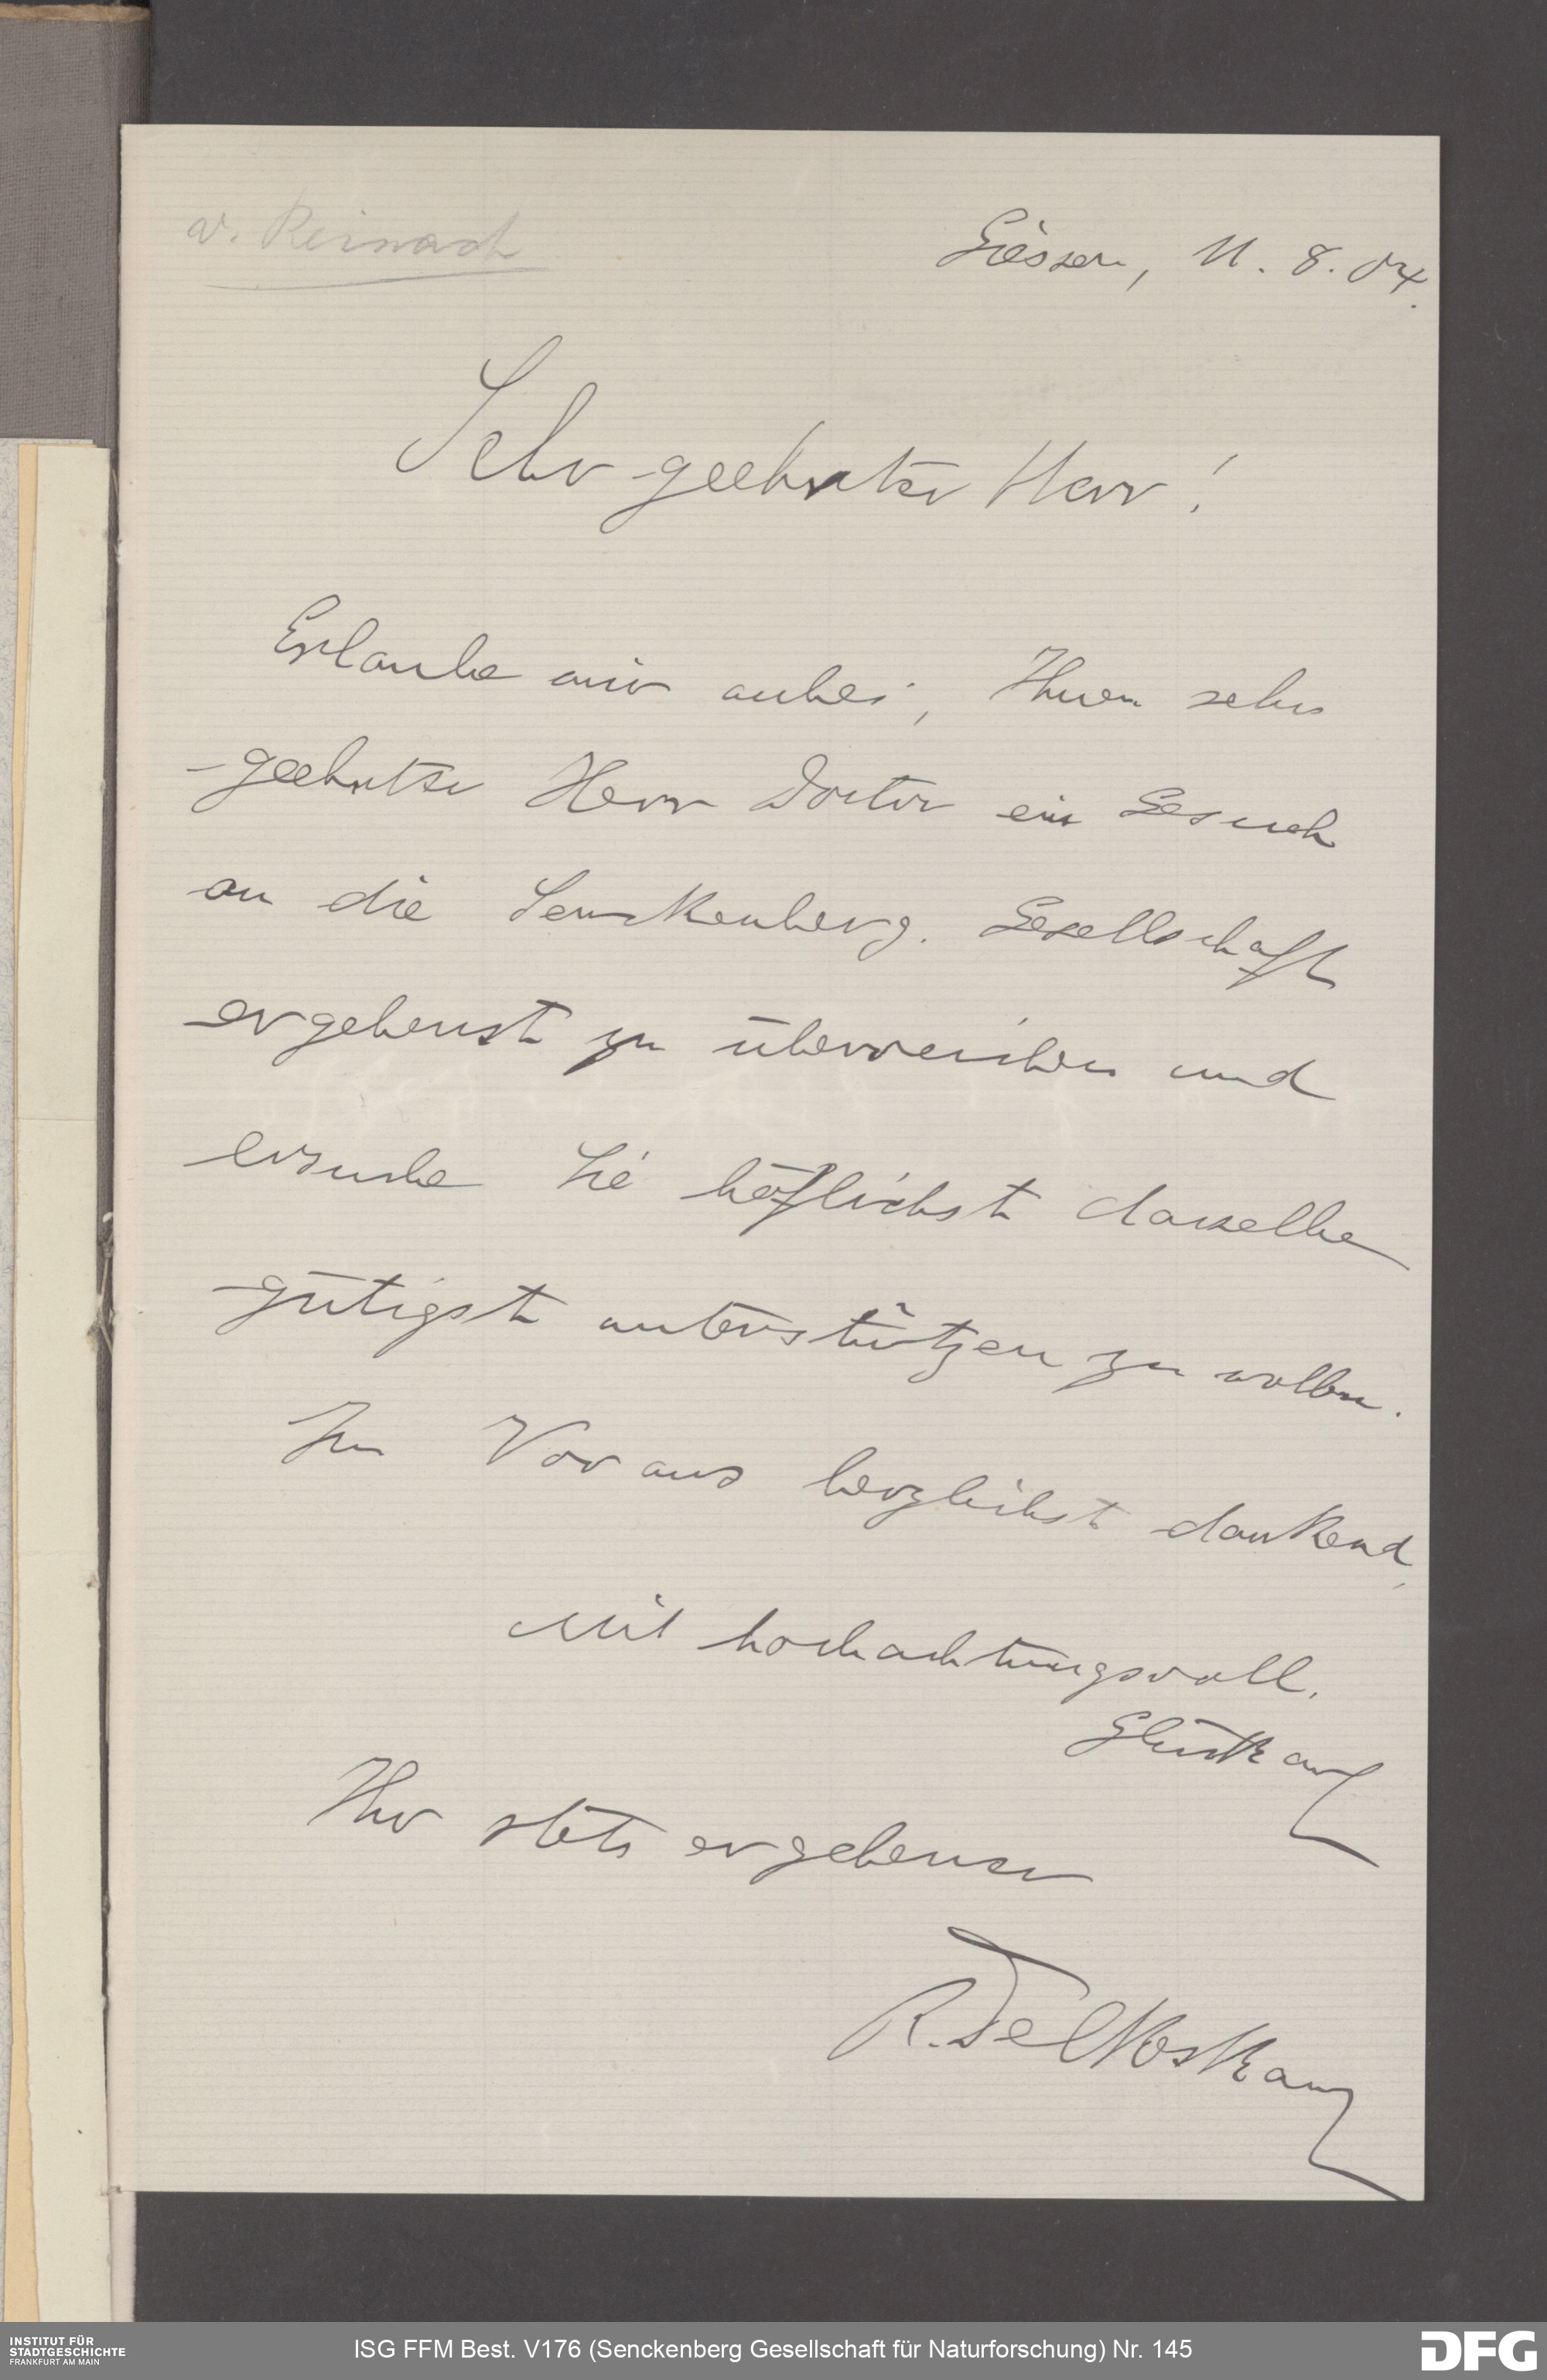 v. Reinach
Giessen, 11. 8. 04.
Sehr geehrter Herr!
Erlaube mir anbei, Ihnen sehr
geehrter Herr Doctor ein Gesuch
an die Senckenberg. Gesellschaft
ergebenst zu überreichen und
ersuche Sie höflichst dasselbe
gütigst unterstützen zu wollen.
Im Voraus herzlichst dankend,
mit hochachtungsvoll.
Glückauf
Ihr stets ergebener
R. Delkeskamp
INSTITUT FÜR
STADTGESCHICHTE
FRANKFURT AM MAIN
ISG FFM Best. V176 (Senckenberg Gesellschaft für Naturforschung) Nr. 145
DFG